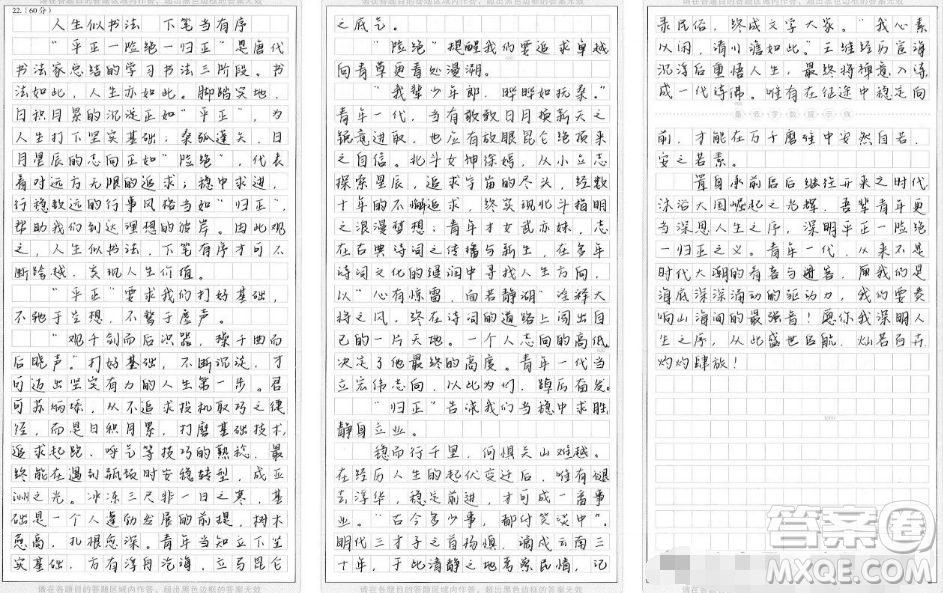 请在各题目的答题区域内作答，超出黑色边框的答案无效
22.(60分)
人生似书法　下笔当有序
“平正一险绝一归正”是唐代
书法家总结的学习书法三阶段。书
法如此，人生亦如此。脚踏实地、
日积月累的沉淀正如“平正”，为
人生打下坚实基础；桑弧蓬矢、日
月星辰的志向正如“险绝”，代表
着对远方无限的追求；稳中求进，
行稳致远的行事风格当如“归正”，
帮助我们到达理想的彼岸。因此观
之，人生似书法，下笔有序才可不
断跨越，实现人生价值。
“平正”要求我们打好基础，
不驰于空想，不骛于虚声。
“观千剑而后识器，操千曲而
后晓声”打好基础，不断沉淀，才
可迈出坚实有力的人生第一步。君
可苏炳添，从不追求投机取巧之捷
径，而是日积月累，打磨基础技术，
追求起跑、呼气等技巧的熟稔，最
终能在遇到瓶颈时安稳转型，成亚
洲之光。冰冻三尺非一日之寒，基
础是一个人蓬勃发展的前提，树木
愈高，扎根愈深。青年当知立下坚
实基础，方有浮舟沧海，立马昆仑
请在各题目的答题区域内作答，超出黑色边框的答案无效
之底气。
“险绝”提醒我们要追求卓越
向青草更青处漫溯。
“我辈少年郎，晔晔如扶桑。”
青年一代，当有敢教日月换新天之
锐意进取，也应有放眼昆仑绝顶来
之自信。北斗女神徐嬌，从小立志
探索星辰，追求宇宙的尽头，经数
十年的不懈追求，终实现北斗指明
之浪漫梦想；青年才女武亦姝，志
在古典诗词之传播与新生，在多年
诗词文化的浸润中寻找人生方向，
以“心有惊雷，面若静湖”诠释大
将之风，终在诗词的道路上闯出自
己的一片天地。一个人志向的高低
决定了他最终的高度。青年一代当
立宏伟志向，以此为们，踔厉奋发。
“归正”告诫我们当稳中求胜，
静身立业。
稳而行千里，何惧关山难越。
在经历人生的起伏变迁后，唯有褪
去浮华，稳定前进，才可成一番事
业。“古今多少事，都付笑谈中”，
明代三才子之首杨慎，谪戍云南三
十年，于此清静之地考察民情，记
请在各题目的答题区域内作答，超出黑色边框的答案无效
录民俗，终成文学大家。“我心素
以闲，清川澹如此。”王维经历宦海
沉浮后重悟人生，最终将禅意入诗，
成一代诗佛。唯有在征途中稳定向
前，才能在万千磨难中安然自若，
安之若素。
置身承前启后继往开来之时代
沐浴大国崛起之光辉，吾辈青年更
当深思人生之序，深明平正一险绝
一归正之义。青年一代，从来不是
时代大潮的看客与过客，而我们是
海底深深涌动的驱动力，我们要奏
响山海间的最强音！愿你我深明人
生之序，从此盛世启航，灿若百卉
灼灼肆放！
答案圈
MXQE.COM